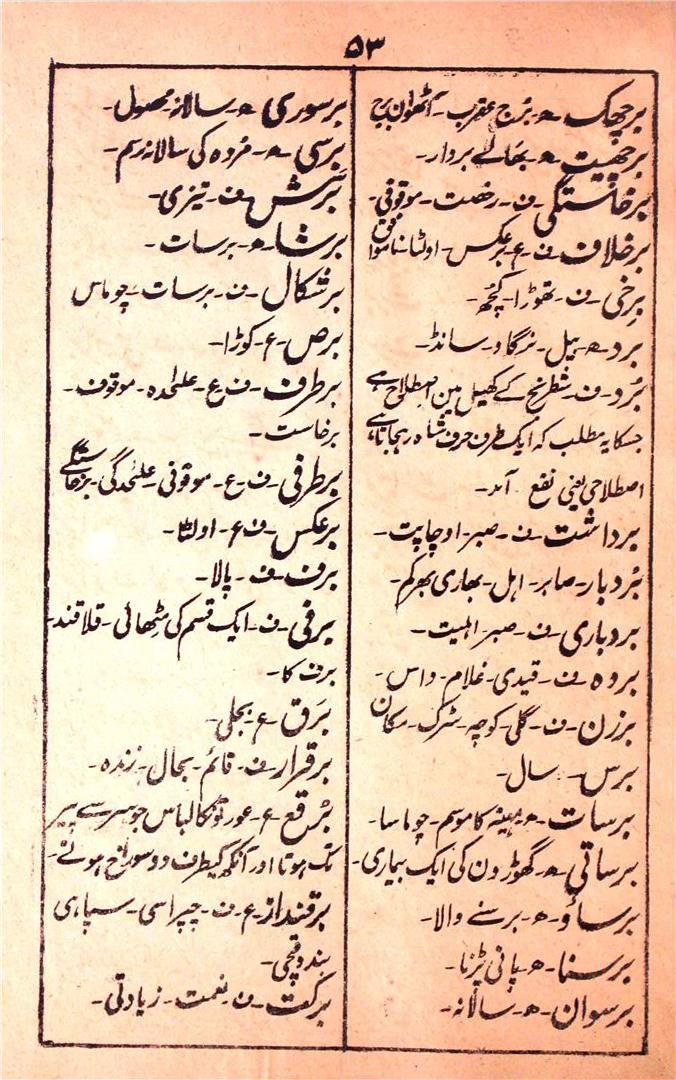 ۵۳
برچھک۔ ھ۔ برج عقرب۔ آٹھوان برج
برچھیت۔ ھ۔ بھالے بردار۔
برخاستگی۔ ف۔ رخصت۔ موقوفی۔
برخلاف۔ ف۔ ع۔ برعکس۔ اولٹا۔ ناموافق
برخی۔ ف۔ تھوڑا۔ کچھ۔
برد۔ ھ۔ بیل۔ نرگاو۔ سانڈ۔
بُرد۔ ف۔ شطرنج کے کھیل مین اصطلاح ہے
جسکا یہ مطلب کہ ایک طرف صرف شاہ رہجاتا ہے
اصطلاحی یعنی نفع۔ آمد۔
برداشت۔ ف۔ صبر۔ اوچاپت۔
بُردبار۔ صابر۔ اہل۔ بھاری بھرکم۔
بردباری۔ ف۔ صبر۔ اہلیت۔
بردہ۔ ف۔ قیدی۔ غلام۔ داس۔
برزن۔ ف۔ گلی۔ کوچہ۔ سڑک۔ مکان
برس۔ سال۔
برسات۔ ھ۔ مینہ کا موسم۔ چوماسا۔
برساتی۔ ھ۔ گھوڑون کی ایک بیماری۔
برساؤ۔ ھ۔ برسنے والا۔
برسنا۔ ھ۔ پانی پڑنا۔
برسوان۔ ھ۔ سالانہ۔
برسوری۔ ھ۔ سالانہ محصول۔
برسی۔ ھ۔ مُردہ کی سالانہ رسم۔
بَرِش۔ ف۔ تیزی۔
برشا۔ ھ۔ برسات۔
برشکال۔ ف۔ برسات۔ چوماس
برص۔ ع۔ کوڑا۔
برطرف۔ ف۔ ع۔ علٰحدہ۔ موقوف۔
برخاست۔
برطرفی۔ ف۔ ع۔ موقوفی۔ علٰحدگی۔ برخاستگی
برعکس۔ ف۔ ع۔ اولٹا۔
برف۔ ف۔ پالا۔
برفی۔ ف۔ ایک قسم کی مٹھائی۔ قلاقند۔
برف کا۔
بَرق۔ ع۔ بجلی۔
برقرار۔ ف۔ قائم۔ بحال۔ زندہ۔
بُرقع۔ ع۔ عورتونکا لباس جو سر سے پیر
تک ہوتا اور آنکھ کیطرف دو سوراخ ہوتے۔
برقنداز۔ ع۔ ف۔ چپراسی۔ سپاہی
بندوقچی۔
برکت۔ ف۔ نعمت۔ زیادتی۔